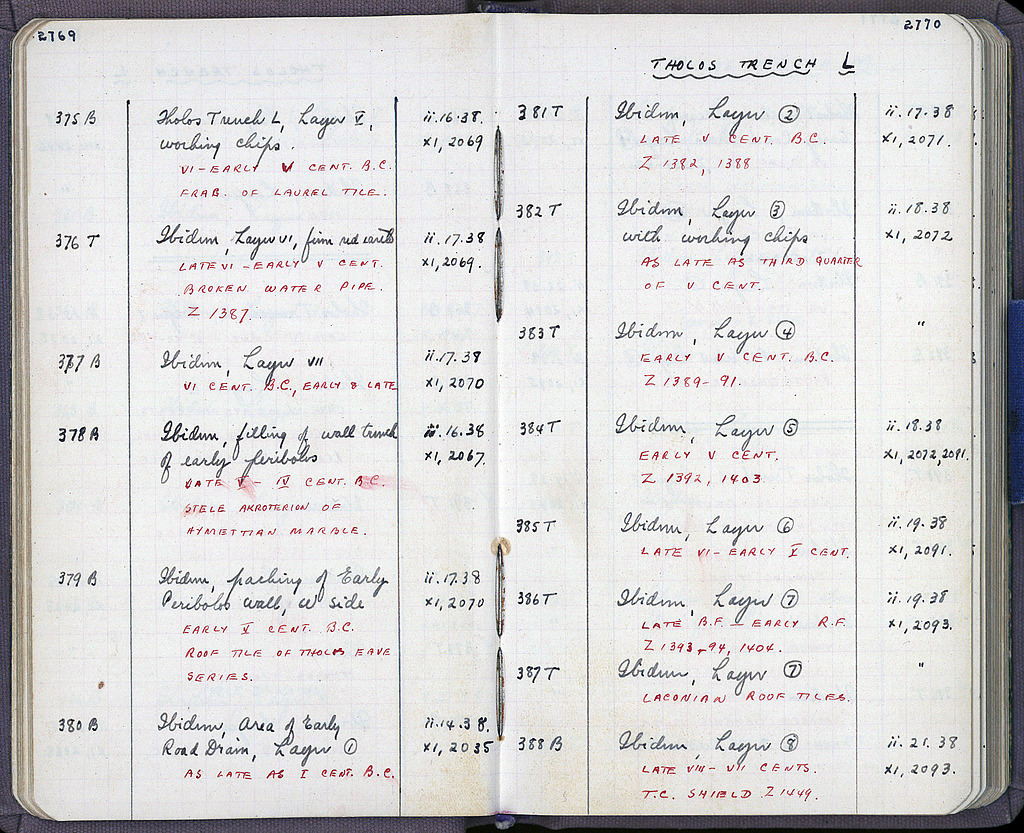 2769
375 B Tholos Trench L, Layer V, ii.16.38.
working chips. XI, 2069
VI - EARLY V CENT. B.C.
FRAG. OF LAUREL TILE.
376 T Ibidem, Layer VI, firm red earth ii.17.38
LATE VI - EARLY V CENT. XI, 2069.
BROKEN WATER PIPE.
Z 1387.
377 B Ibidem, Layer VII ii.17.38
VI CENT. B.C., EARLY & LATE XI, 2070
378 B Ibidem, filling of wall trench ii.16.38
of early peribolos XI, 2067.
LATE V - IV CENT. B.C.
STELE AKROTERION OF
HYMETTIAN MARBLE.
379 B Ibidem, packing of Early ii.17.38
Peribolos wall, W side XI, 2070
EARLY V CENT. B.C.
ROOF TILE OF THOLOS EAVE
SERIES.
380 B Ibidem, Area of Early ii.14.38.
Road Drain, Layer ① XI, 2035
AS LATE AS I CENT. B.C.
2770
THOLOS TRENCH L
381 T Ibidem, Layer ② ii.17.38
LATE V CENT. B.C. XI, 2071.
Z 1382, 1388
382 T Ibidem, Layer ③ ii.18.38
with working chips XI, 2072
AS LATE AS THIRD QUARTER
OF V CENT.
383 T Ibidem, Layer ④ "
EARLY V CENT. B.C.
Z 1389-91.
384 T Ibidem, Layer ⑤ ii.18.38
EARLY V CENT. XI, 2072, 2091.
Z 1392, 1403.
385 T Ibidem, Layer ⑥ ii.19.38
LATE VI - EARLY V CENT. XI, 2091.
386 T Ibidem, Layer ⑦ ii.19.38
LATE B.F. - EARLY R.F. XI, 2093.
Z 1393-94, 1404.
387 T Ibidem, Layer ⑦ "
LACONIAN ROOF TILES.
388 B Ibidem Layer ⑧ ii.21.38
LATE VIII - VII CENTS. XI, 2093.
T.C. SHIELD Z 1449.